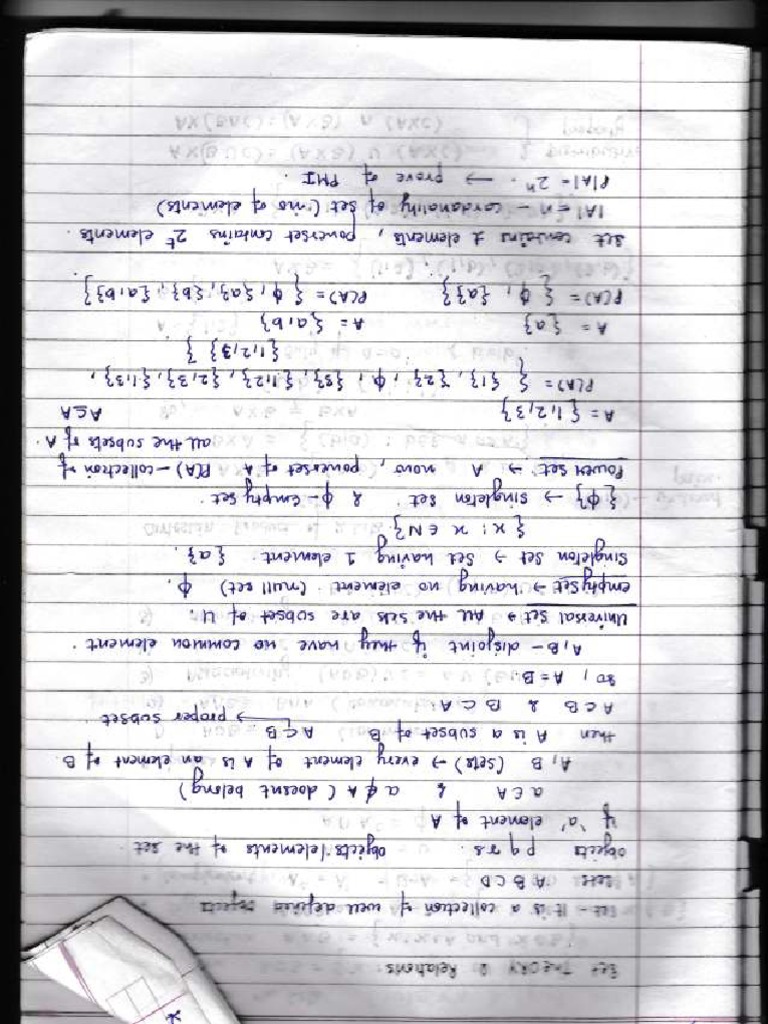 SET THEORY & Relations:
Set - It is a collection of well defined objects
sets A B C D
objects p q r s. objects/elements of the set
if 'a' element of A
a ∈ A & a ∉ A (doesnt belong)
A, B (sets) → every element of A is an element of B
then A is a subset of B A ⊂ B → proper subset
A ⊂ B & B ⊂ A
so, A = B
A, B - disjoint if they have no common element.
Universal set → All the sets are subset of U.
empty set → having no element (null set) ϕ.
Singleton set → set having 1 element. {a}.
{x : x ∈ N}
{ϕ} → singleton set. & ϕ - empty set.
Power set: → A now, powerset of A P(A) - collection of
all the subsets of A.
A = {1,2,3} A ⊆ A
P(A) = { {1}, {2}, ϕ, {3}, {1,2}, {2,3}, {1,3},
{1,2,3} }
A = {a} A = {a,b}
P(A) = { ϕ, {a} } P(A) = { ϕ, {a}, {b}, {a,b} }
Set contains t elements, powerset contains 2ᵗ elements.
|A| = n - cardanality of set (no of elements)
P|A| = 2ⁿ. → prove of PMI.